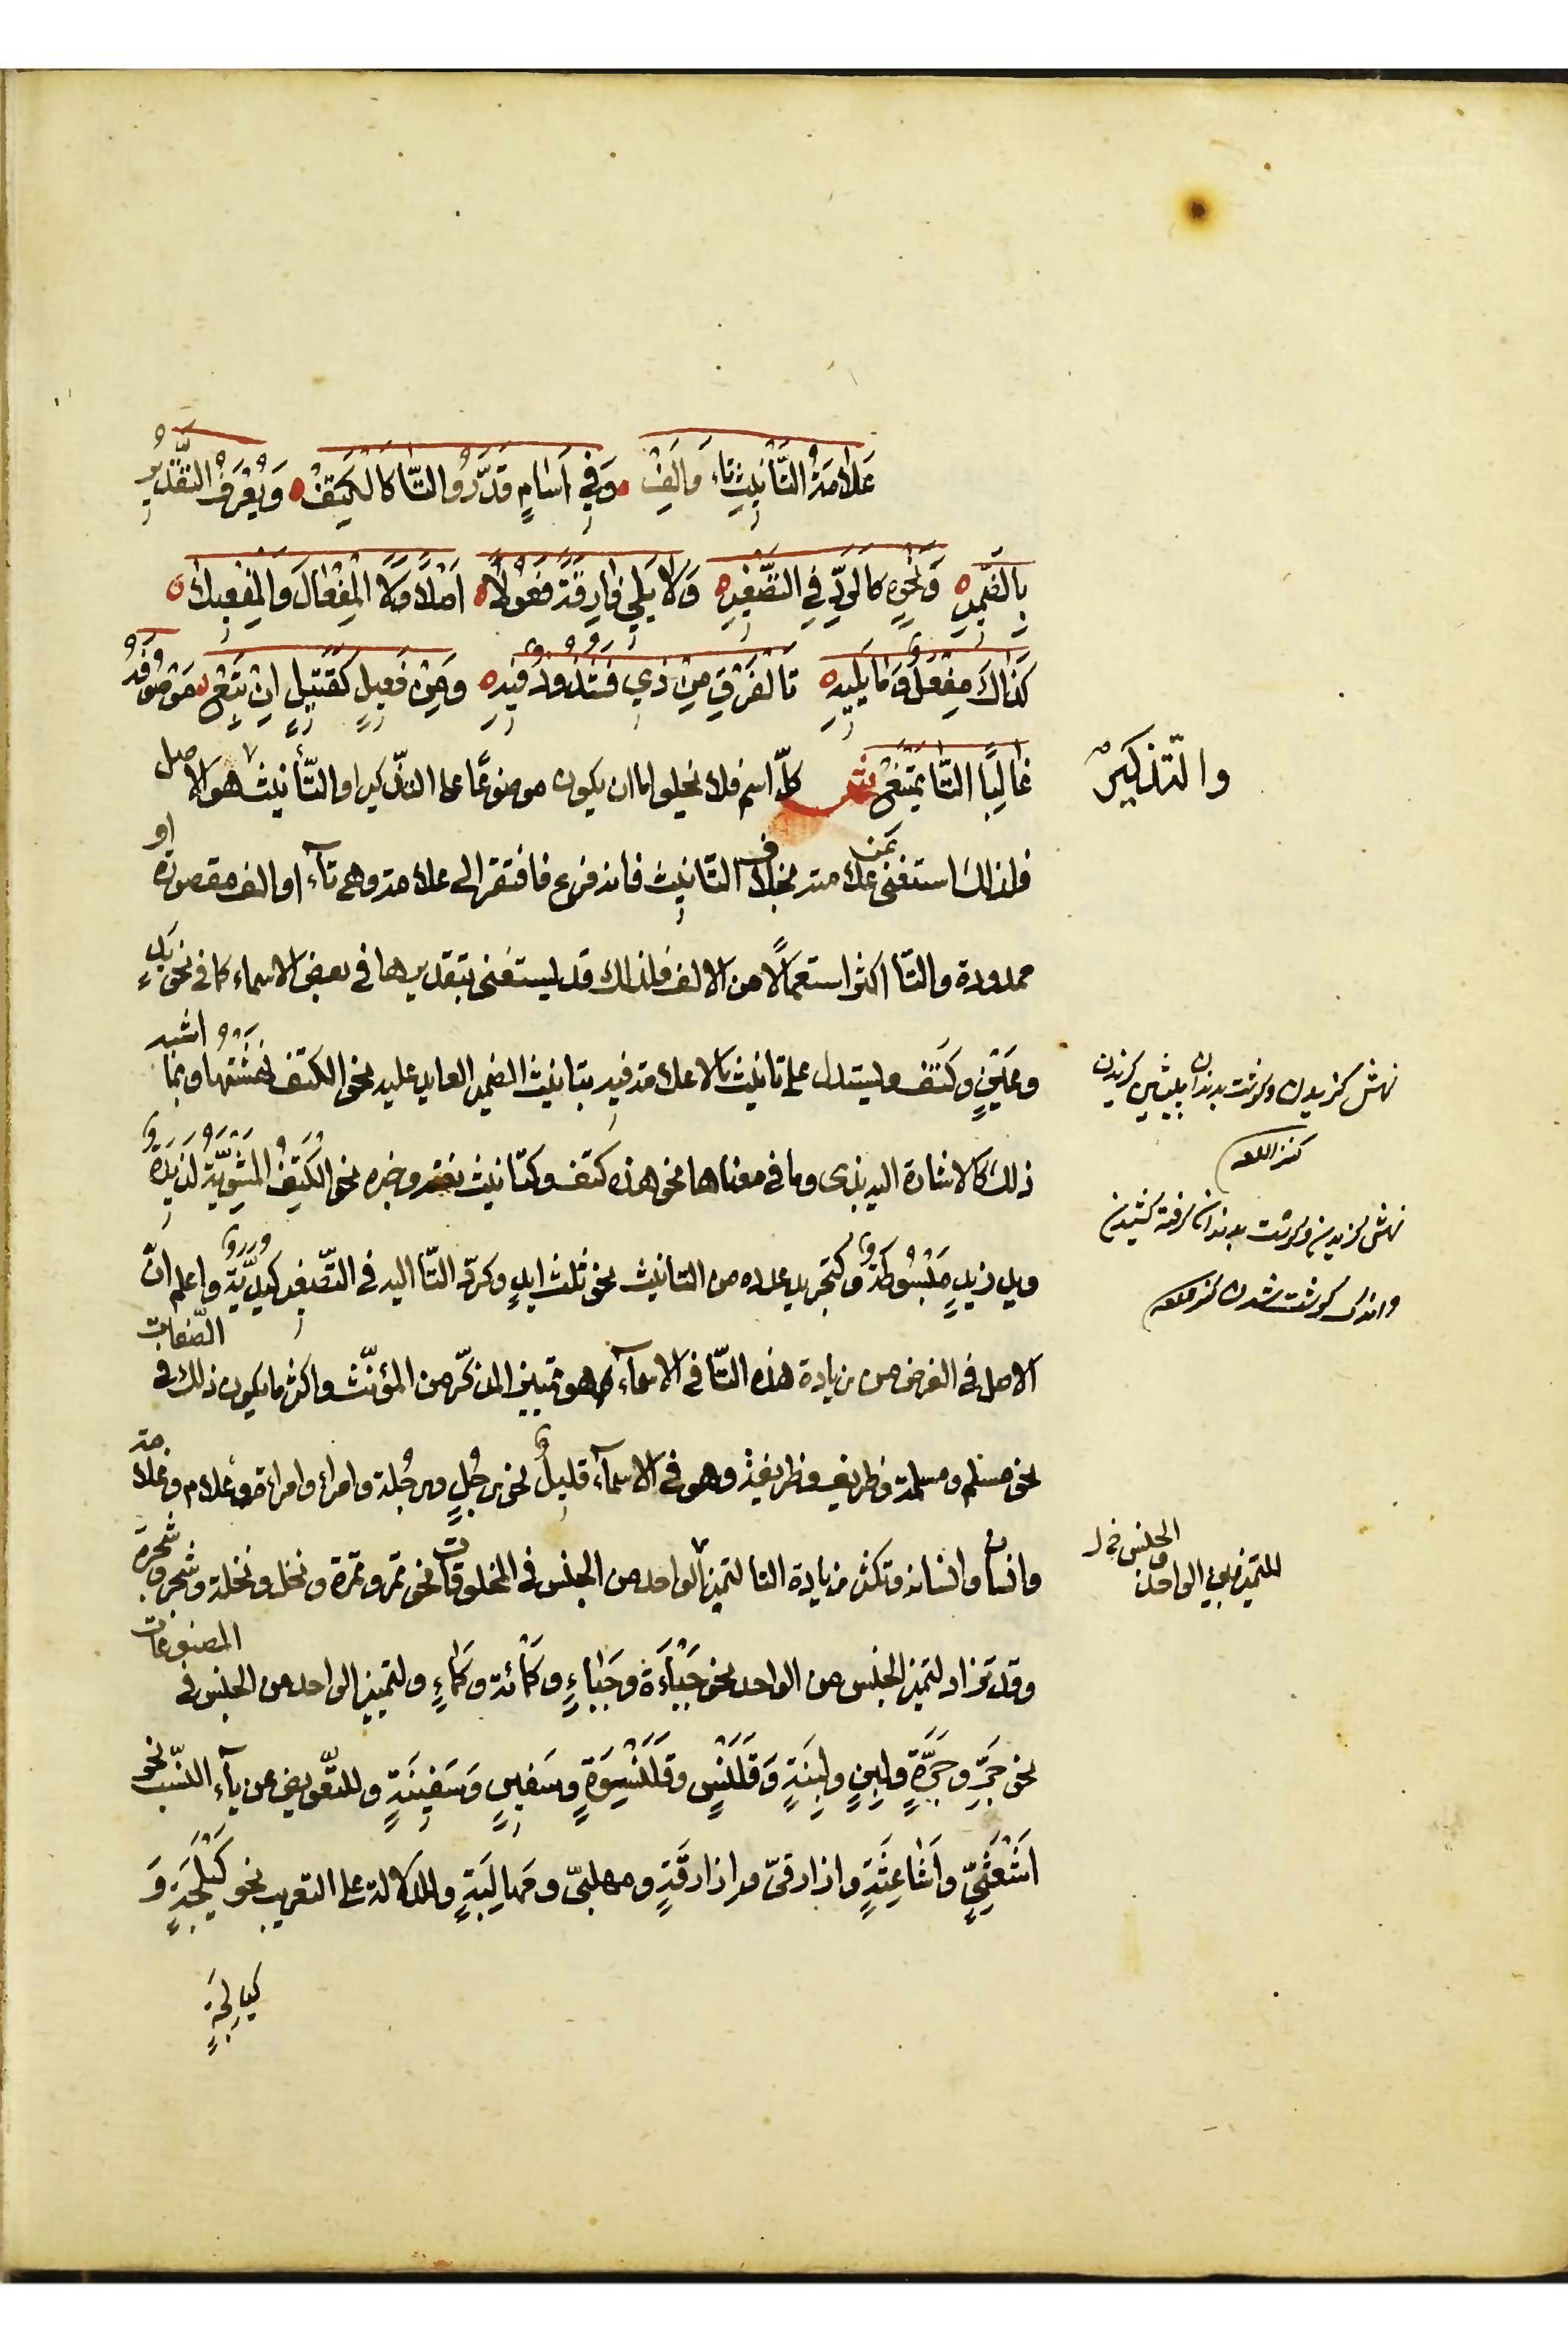 عَلَامَةُ التَّأنِيثِ تَاءٌ وَاَلِفْ وَفِي اَسَامٍ قَدَّرُوا التَّا كَالْكَتِفْ وَيُعْرَفُ التَّقْدِيرُ
بِالضَّمِيرِ وَنَحْوِهِ كَالرَّدِّ فِي التَّصْغِيرِ وَلَا يَلِي فَارِقَةً فَعُولًا اَصْلًا وَلَا الْمِفْعَالَ وَالْمِفْعِيلَا
كَذَاكَ مِفْعَلٌ وَمَا يَلِيهِ تَا الْفَرْقِ مِنْ ذِي فَشُذُوذٌ فِيهِ وَمِنْ فَعِيلٍ كَقَتِيلٍ اِنْ تَبِعْ مَوْصُوفَهُ
غَالِبًا التَّا يَمْتَنِعْ ش كلّ اسم فلا يخلو اما ان يكون موضوعًا على التذكير او التّأنيث هو الاصل
والتّذكيرُ
فلذلك استغنى عن علامته بخلاف التّانيث فانه فرع فافتقر الى علامة وهى تاء او الف مقصورة او
ممدودة والتّا اكثر استعمالًا من الالف فلذلك قد يستغنى بتقديرها فى بعض الاسماء كما فى نحو يَدٍ
وعَيْنٍ وكَتف ويستدل على تانيث ما لا علامة فيه بتانيث الضمير العايد عليه نحو الكتف نهشتها وبما اشبه
ذلك كالاشارة اليه بذى وما فى معناها نحو هذه كتف وكتانيث نعته وخبره نحو الكَتِفُ المَشْوِيَّةُ لذيذةٌ
ويد زيدٍ مَبْسُوطَةٌ وكتجريد عدده من التانيث نحو ثلث ايدٍ وكردّ التّا اليه فى التّصغير كيُدَيَّةٍ واعلم انّ
الاصل فى الغرض من زيادة هذه التّا فى الاسمآء هو تمييز المذكّر من المؤنّث واكثر ما يكون ذلك فى الصّفات
نحو مسلم ومسلمة وظريف وظريفة وهو فى الاسمآء قليلٌ نحو رجُلٍ ورجُلة وامرئ وامرأة وغلام وغلامة
وانسان وانسانه وتكثر زيادة التا لتميز الواحد من الجنس فى المخلوقات نحو تمر وتمرة ونخل ونخلة وشجر وشجرة
وقد تزاد لتميّز الجنس من الواحد نحو جَبْأَةَ وجَبَاءٍ وكَمْأَة وكَمَاءٍ ولتمييز الواحد من الجنس فى المصنوعات
نحو جَرٍّ وجَرَّةٍ ولَبِنٍ ولَبِنَةٍ وَقَلَنْسٍ وقَلَنْسِوَةٍ وسَفِينٍ وَسَفِينَةٍ وللتّعويض عن يآء النّسب نحو
اَشْعَثِيٍّ واَشَاعِثَةٍ وازارقىّ وازارقَةٍ ومهلبىّ ومَهالِبَةٍ وللدلالة على التعريب نحو كَيْلَجَةٍ وَ
كيالِجَةٍ
نهش كزيدن وكوشت بدندان پيشين كزيدن
كنز اللغه
نهش كزيدن وكوشت بدندان كرفته كشيدن
واندك كوشت شدن كنز اللغه
الجنس خ ل
للتميز بين الواحد و